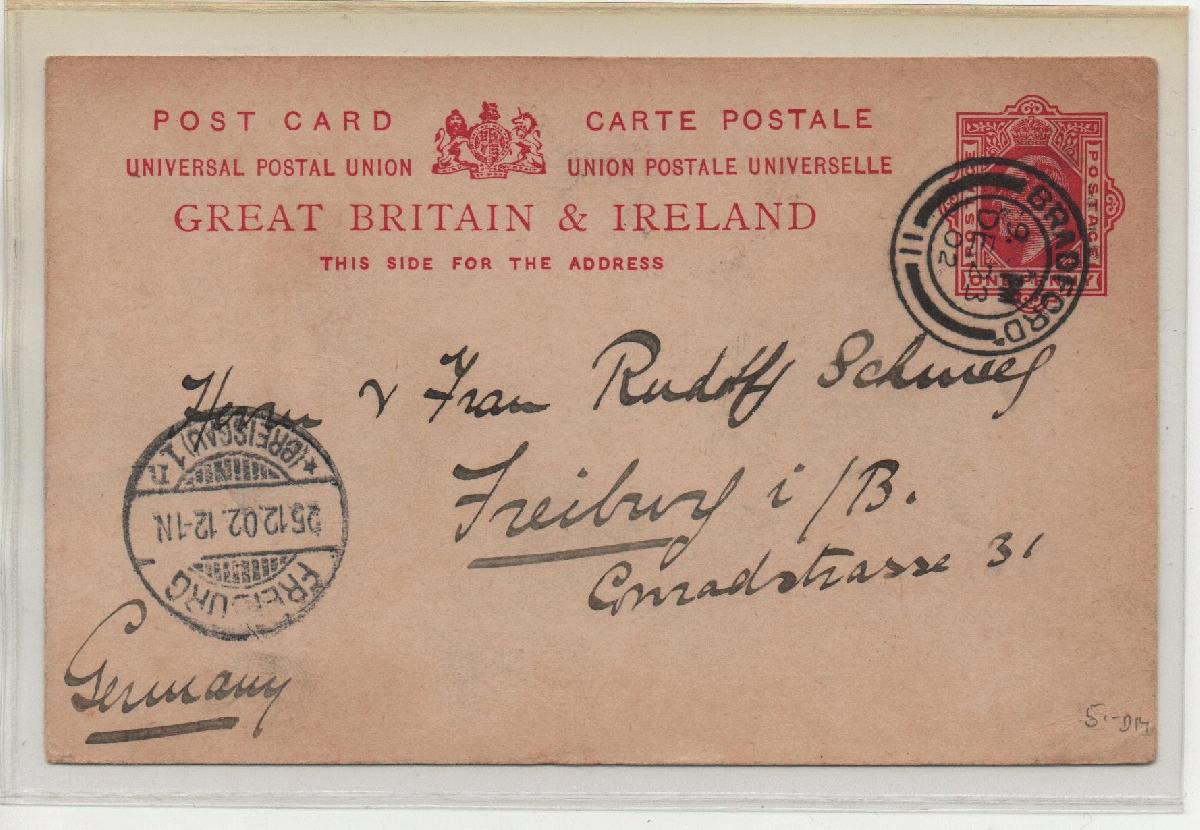 POST CARD CARTE POSTALE
UNIVERSAL POSTAL UNION UNION POSTALE UNIVERSELLE
GREAT BRITAIN & IRELAND
THIS SIDE FOR THE ADDRESS
POSTAGE
ONE PENNY
BRADFORD
9. PM
DE 23
02
11
Herrn & Frau Rudolf
Freiburg i/B.
Conradstrasse 31
Germany
FREIBURG
25.12.02. 12-1N
* (BREISGAU) 1
5.-DM